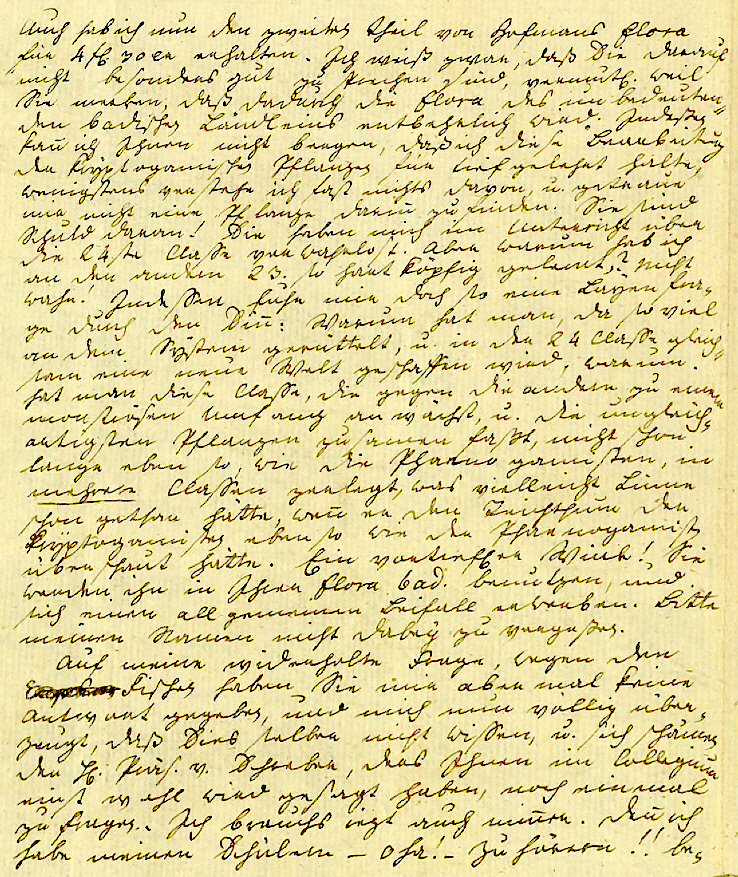 Auch hab ich nun den zweiten Theil von Hofmans Flora
für 4 fl. 30 cr erhalten. Ich weiß zwar, daß Sie darauf
nicht besonders gut zu sprechen sind, vermutl. weil
Sie merken, daß dadurch die Flora des unbedeuten-
den badischen Ländleins entbehrlich wird. Indessen
kan ich Ihnen nicht bergen, daß ich diese Bearbeitung
der kryptogamischen Pflanzen für tief gelehrt halte,
wenigstens verstehe ich fast nichts davon, u. getraue
mir nicht eine Pflanze darin zu finden. Sie sind
Schuld daran! Sie haben mich im Unterricht über
die 24ste Classe verwahrlost. Aber warum hab ich
an den andern 23. so hart köpfig gelernt,? Nicht
wahr! Indessen fuhr mir doch so eine Layen Fra-
ge durch den Sin: Warum hat man, da so viel
an dem System gerüttelt, u. in der 24 Classe gleich-
sam eine neue Welt geschaffen wird, warum
hat man diese Classe, die gegen die andern zu einem
monstrosen Umfang anwächst, u. die ungleich-
artigsten Pflanzen zusamen faßt, nicht schon
lange eben so, wie die Phaenogamisten, in
mehrere Classen zerlegt, was vielleicht Linne
schon gethan hätte, wen er den Reichthum der
Kryptogamisten eben so wie der Phaenogamist.
überschaut hätte. Ein vortreffler Wink! Sie
werden ihn in Ihrer Flora bad. benutzen, und
sich einen allgemeinen Beifall erwerben. Bitte
meinen Namen nicht dabey zu vergessen.
Auf meine widerholte Frage, wegen den
Fischen haben Sie mir abermal keine
Antwort gegeben, und mich nun völlig über-
zeugt, daß Dies selben nicht wissen, u. sich schämen
den H. Präs. v. Schreber, ders Ihnen im Collegium
einst wohl wird gesagt haben, noch einmal
zu fragen. Ich brauchs iezt auch nimer. Den ich
habe meinen Schülern – oha! – Zuhörern!! be-